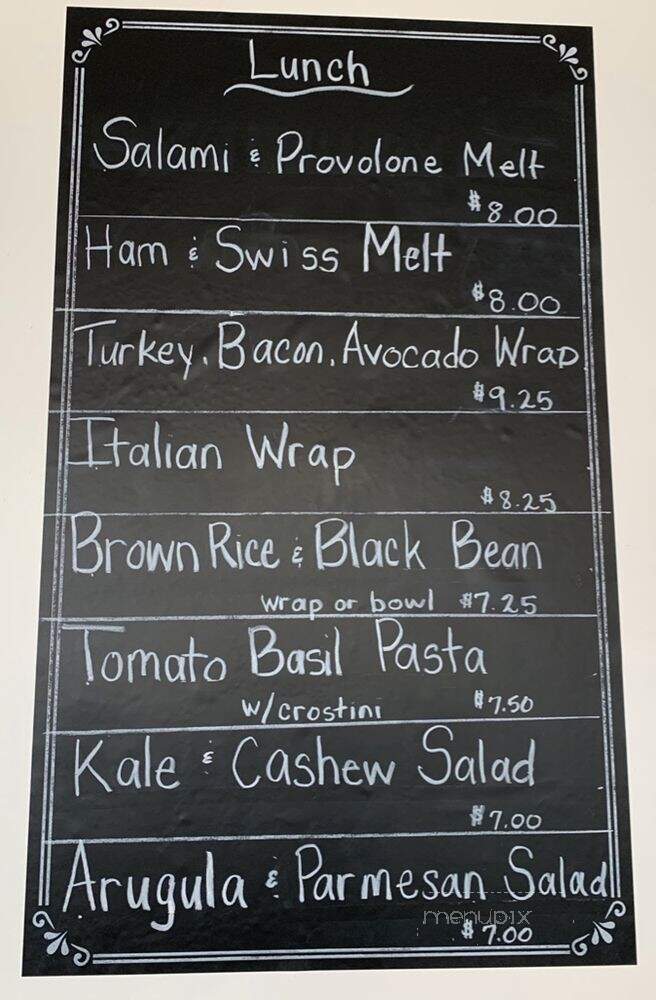 Lunch
Salami & Provolone Melt
$8.00
Ham & Swiss Melt
$8.00
Turkey, Bacon, Avocado Wrap
$9.25
Italian Wrap
$8.25
Brown Rice & Black Bean
wrap or bowl $7.25
Tomato Basil Pasta
w/crostini $7.50
Kale & Cashew Salad
$7.00
Arugula & Parmesan Salad
menupix
$7.00